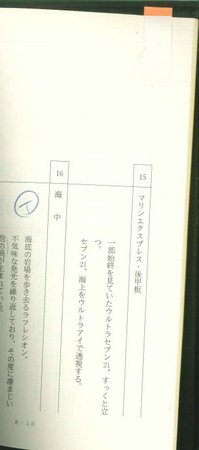 15
マリンエクスプレス・後甲板
一部始終を見ていたウルトラセブン21、すっくと立
つ。
セブン21、海上をウルトラアイで透視する。
16
海中
イ
海底の岩場を歩き去るラフレシオン。
不気味な発光を繰り返しており、その度に凄まじい
泡の渦が生まれている。
8-16